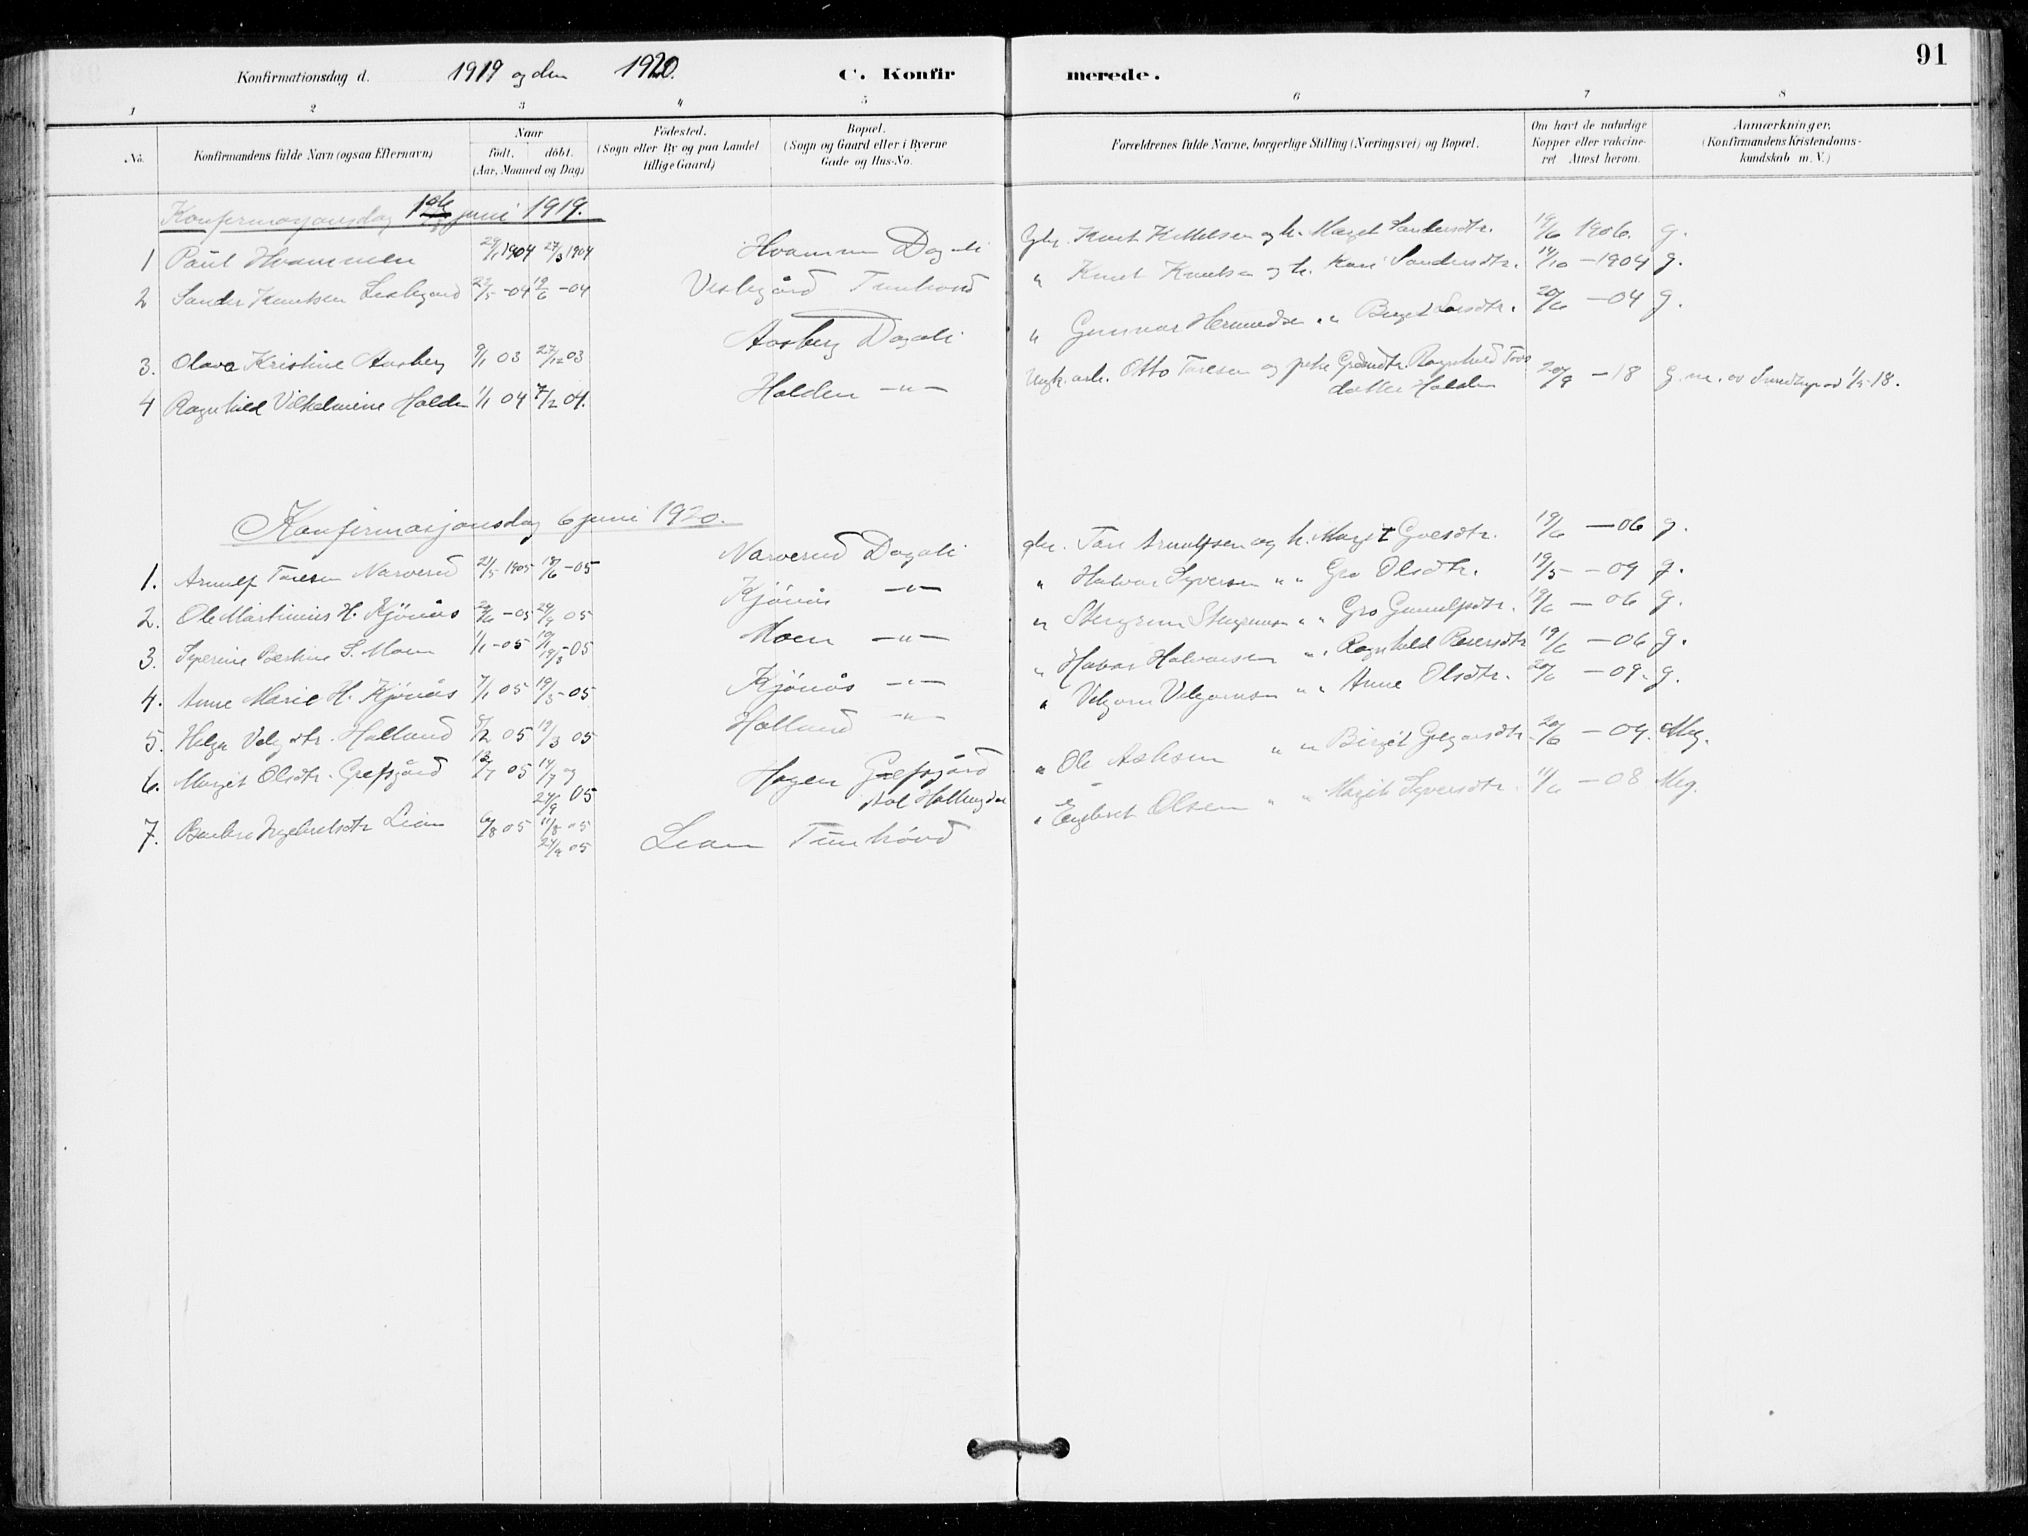 91
Konfirmationsdag d. 1919 og den 1920. C. Konfirmerede.
1 2 3 4 5 6 7 8
No. Konfirmandens fulde Navn (ogsaa Efternavn) Naar födt. döbt. (Aar, Maaned og Dag) Födested. (Sogn eller By og paa Landet tillige Gaard) Bopæl. (Sogn og Gaard eller i Byerne Gade og Hus-No. Forældrenes fulde Navne, borgerlige Stilling (Næringsvei) og Bopæl. Om havt de naturlige Kopper eller vakcineret Attest herom. Anmærkninger. (Konfirmandens Kristendomskundskab m. V.)
Konfirmasjonsdag juni 1919.
1 Paul Hvammen 29/1 1904 27/3 1904 Hvammen Dagali Gbr. Knut Kittilsen og h. Margit Sandersdtr. 19/6 1906. g.
2 Sander Knutsen 22/5 -04 19/6 -04 Tunhovd " Knut Knutsen og h. Kari Sandersdtr. 14/10 -1904 g.
3. Olava Kristine Aasberg 9/1 03 27/12 03 Aasberg Dagali " Gunnar " Birgit 20/6 -04 g.
4 Ragnhild Vilhelmine Holden 1/1 04 7/2 04. Holden -"- Otto Toresen og Ragnhild Tors datter Holden 20/9 -18 g. 1/5 18.
Konfirmasjonsdag 6 juni 1920.
1. Arnulf Toresen Narverud 21/5 1905 18/6 -05 Narverud Dagali gbr. Tore Arnulfsen og h. Margit 19/6 -06 g.
2. Ole Martinius H. Kjönås 29/6 -05 24/9 05 Kjönås -"- " Halvor Syversen " " Gro Olsdtr. 19/5 -09 g.
3. S. Moen 1/1 -05 19/3 -05 Moen -"- " " " Gro Gunulfsdtr. 19/6 -06 g.
4. Anne Marie H. Kjönås 7/1 05 19/3 -05 Kjönås -"- " Halvor Halvorsen " " Ragnhild 19/6 -06 g.
5. Helga Halland 5/2 05 19/3 05 Halland -"- " " " Anne Olsdtr. 20/6 -09. g.
6. Margit Olsdtr. Grefsgård 12/7 05 14/7 og 24/9 05 Hagen Grefsgård Aal Hallingdal " Ole Aslesen " " Birgit 20/6 -09. Mg.
7. Barbro Ingebretsdtr Lien 6/8 05 11/8 05 24/9 05 Lien Tunhövd " Engebret Olsen " " Margit Syversdtr. 11/6 -08 Mg.